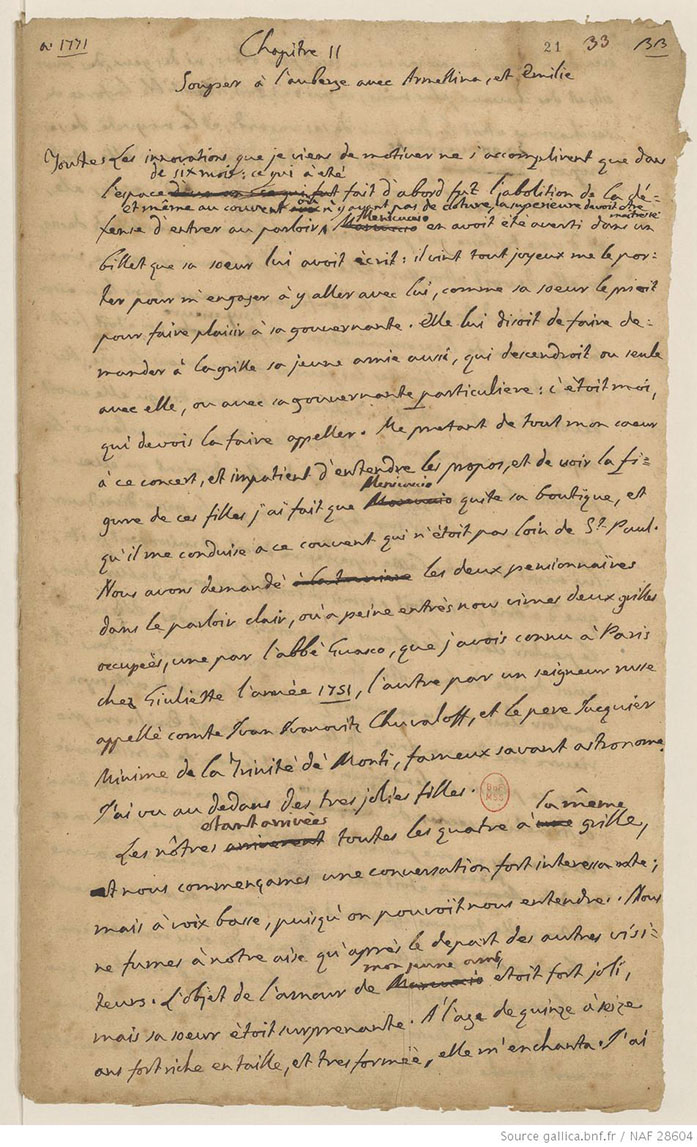 a: 1771 Chapitre II 21 33 133
Souper à l'auberge avec Armellina, et Emilie
Toutes les innovations que je viens de motiver ne s'accomplirent que dans
de six mois: ce qui a été
l'espace fait d'abord fut l'abolition de la dé=
et même au couvent où n'y ayant pas de cloture, la superieure devoit être
maitresse
fense d'entrer au parloir, Menicuccio en avoit été averti dans un
billet que sa soeur lui avoit écrit: il vint tout joyeux me le por=
ter pour m'engager à y aller avec lui, comme sa soeur le prioit
pour faire plaisir à sa gouvernante. Elle lui disoit de faire de=
mander à la grille sa jeune amie aussi, qui descendroit ou seule
avec elle, ou avec sa gouvernante particuliere: c'étoit moi,
qui devois la faire appeller. Me pretant de tout mon coeur
à ce concert, et impatient d'entendre les propos, et de voir la fi=
Menicuccio
gure de ces filles j'ai fait que quite sa boutique, et
qu'il me conduise a ce couvent qui n'étoit pas loin de St. Paul.
Nous avons demandé les deux pensionnaires
dans le parloir clair, où a peine entrés nous vimes deux grilles
occupées, une par l'abbé Guasco, que j'avois connu à Paris
chez Giuliette l'année 1751, l'autre par un seigneur russe
appellé comte Ivan Ivanovitz Chuvaloff, et le pere Jacquier
Minime de la Trinité de Monti, fameux savant astronome.
J'ai vu au dedans des tres jolies filles.
etant arrivées la même
Les nôtres toutes les quatre à grille,
nous commençames une conversation fort interessante;
mais à voix basse, puisqu'on pouvoit nous entendre. Nous
ne fumes à notre aise qu'après le depart des autres visi=
mon jeune ami
teurs. L'objet de l'amour de etoit fort joli,
mais sa soeur étoit surprenante. A l'age de quinze à seize
ans fort riche en taille, et tres formée, elle m'enchanta. J'ai
Source gallica.bnf.fr / NAF 28604